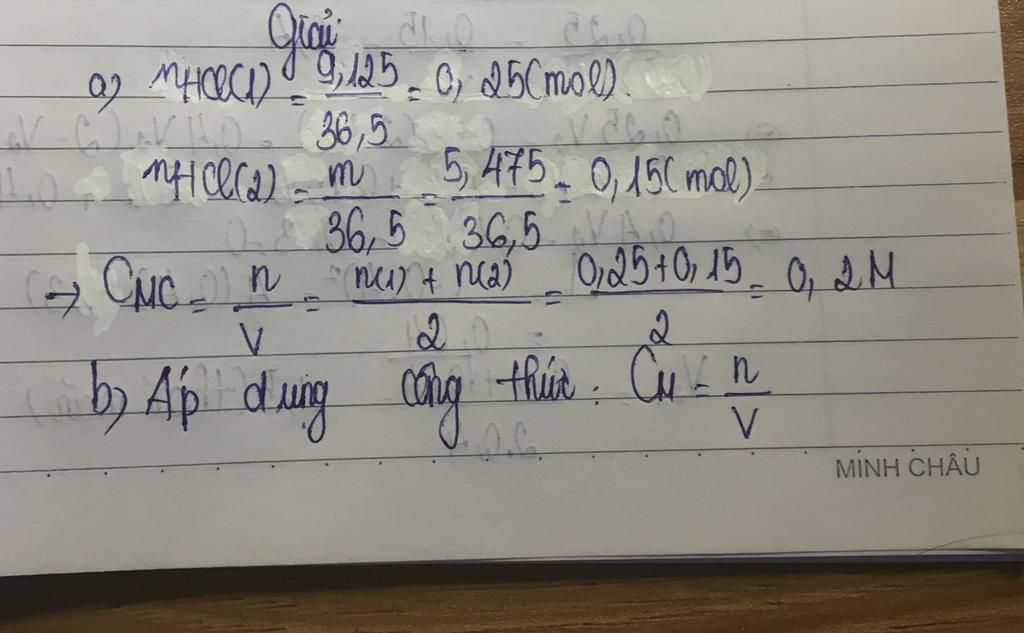 Giải
a) nHCl(1) = 9,125/36,5 = 0,25(mol).
nHCl(2) = m/36,5 = 5,475/36,5 = 0,15(mol)
→ CMC = n/V = n(1) + n(2)/2 = 0,25+0,15/2 = 0,2M
b) Áp dụng công thức: CM = n/V
MINH CHÂU